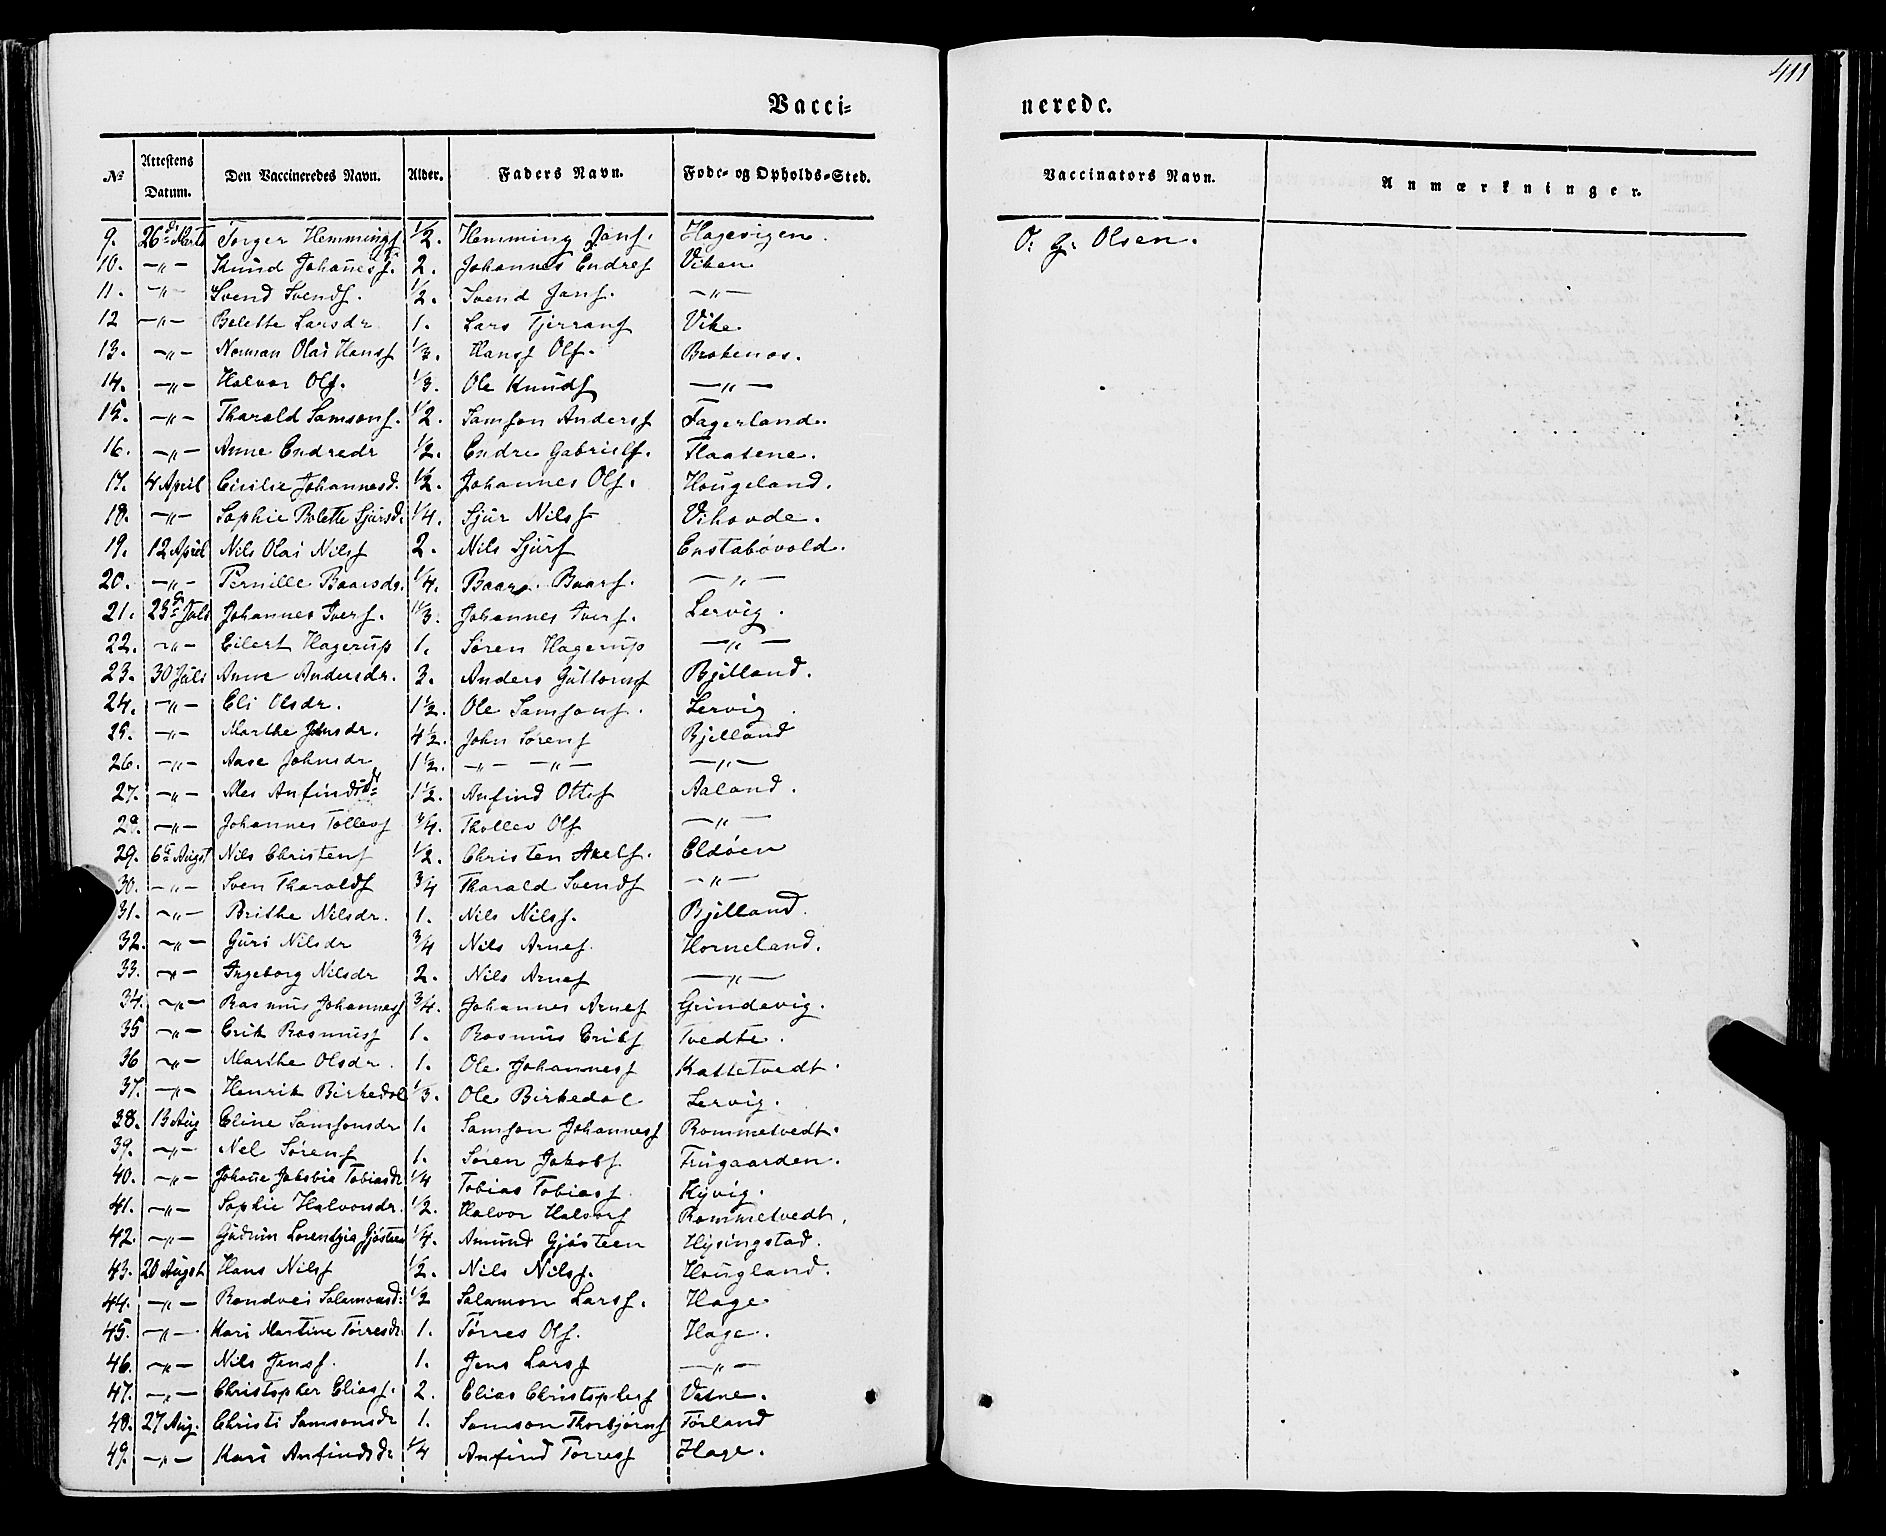 411
Vacci= nerede.
No Attestens Datum. Den Vaccineredes Navn. Alder. Faders Navn. Føde- og Opholds-Sted. Vaccinators Navn. Anmærkninger.
9. 26de Marts Torger Hemmings 1/2. Hemming Jans. Hagevigen. O. G. Olsen.
10. —"— Knud Johaness. 2. Johannes Endres Viken
11. —"— Svend Svends. 1/2. Svend Jans. —"—
12 —"— Belette Larsdr 1. Lars Tjerrans Vike
13. —"— Norman Olai Hans 1/3. Hans Ols. Brekenes.
14. —"— Halvor Ols. 1/3. Ole Knuds —"—
15. —"— Tharald Samsons. 1/2. Samson Anders Fagerland.
16. —"— Anne Endredr 1/2. Endre Gabriels. Flaatene.
17. 4 April Cicilie Johannesd. 1/2. Johannes Ols. Hougeland.
18. —"— Sophie Bolette Sjursd. 1/4. Sjur Nils Vihovde.
19. 12 April Nils Olai Nils 2. Nils Sjurs Enstabövold.
20. —"— Pernille Baarsdr. 1/4. Baar Baars. —"—
21. 23de Juli Johannes Ivers. 1 1/3. Johannes Ivers. Lervig.
22. —"— Eilert Hagerup 1. Søren Hagerup —"—
23. 30 Juli Anne Andersdr. 3. Anders Guttorms Bjelland.
24. —"— Eli Olsdr. 1 1/2. Ole Samsons. Lervig
25. —"— Marthe Johnsdr. 4 1/2. John Sørens Bjelland
26. —"— Aase Johnsdr 1 1/2. —"— —"— —"—
27. —"— Ales Anfindsdr 1 1/2. Anfind Ottes Aaland.
28. —"— Johannes Tollevs 3/4. Thollev Ols —"—
29. 6te Augst Nils Christens 1/2. Christen Axels. Eldöen
30. —"— Sven Tharalds 3/4 Tharald Svends —"—
31. —"— Brithe Nilsdr. 1. Nils Nils. Bjelland.
32. —"— Guri Nilsdr 3/4 Nils Arnes. Horneland.
33. —"— Ingeborg Nilsdr 2. Nils Arnes —"—
34. —"— Rasmus Johanness 3/4. Johannes Arnes Grindevig.
35 —"— Erik Rasmuss 1. Rasmus Eriks Tvedte.
36 —"— Marthe Olsdr. 1. Ole Johanness Kattetvedt.
37. —"— Henrik Birkedal 1/3. Ole Birkedal Lervig.
38. 13 Aug Eline Samsonsdr 1. Samson Johanness Rommetvedt.
39. —"— Nel Sørens 1. Søren Jakobs Frugaarden.
40. —"— Johane Jakobia Tobiasdr 1/4 Tobias Tobiass. Kyvig.
41. —"— Sophie Halvorsdr. 1/2. Halvor Halvors Rommetvedt.
42. —"— Gudrun Lorentzia Gjösteen 1/4. Amund Gjösteen Hysingstad.
43. 20 Augst Hans Nils 1/2. Nils Nils. Hougland.
44. —"— Randvei Salamonsd. 1/2 Salamon Lars. Hage
45. —"— Kari Martine Tørresdr. 1. Tørres Ols. Hage.
46. —"— Nils Jens. 1. Jens Lars —"—
47. —"— Christopher Elias. 2. Elias Christophers Vatne.
48. 27 Aug. Christi Samsonsdr 1. Samson Thorbjørns Tørland
49. —"— Kari Anfindsdr 1/4 Anfind Tørres Hage.